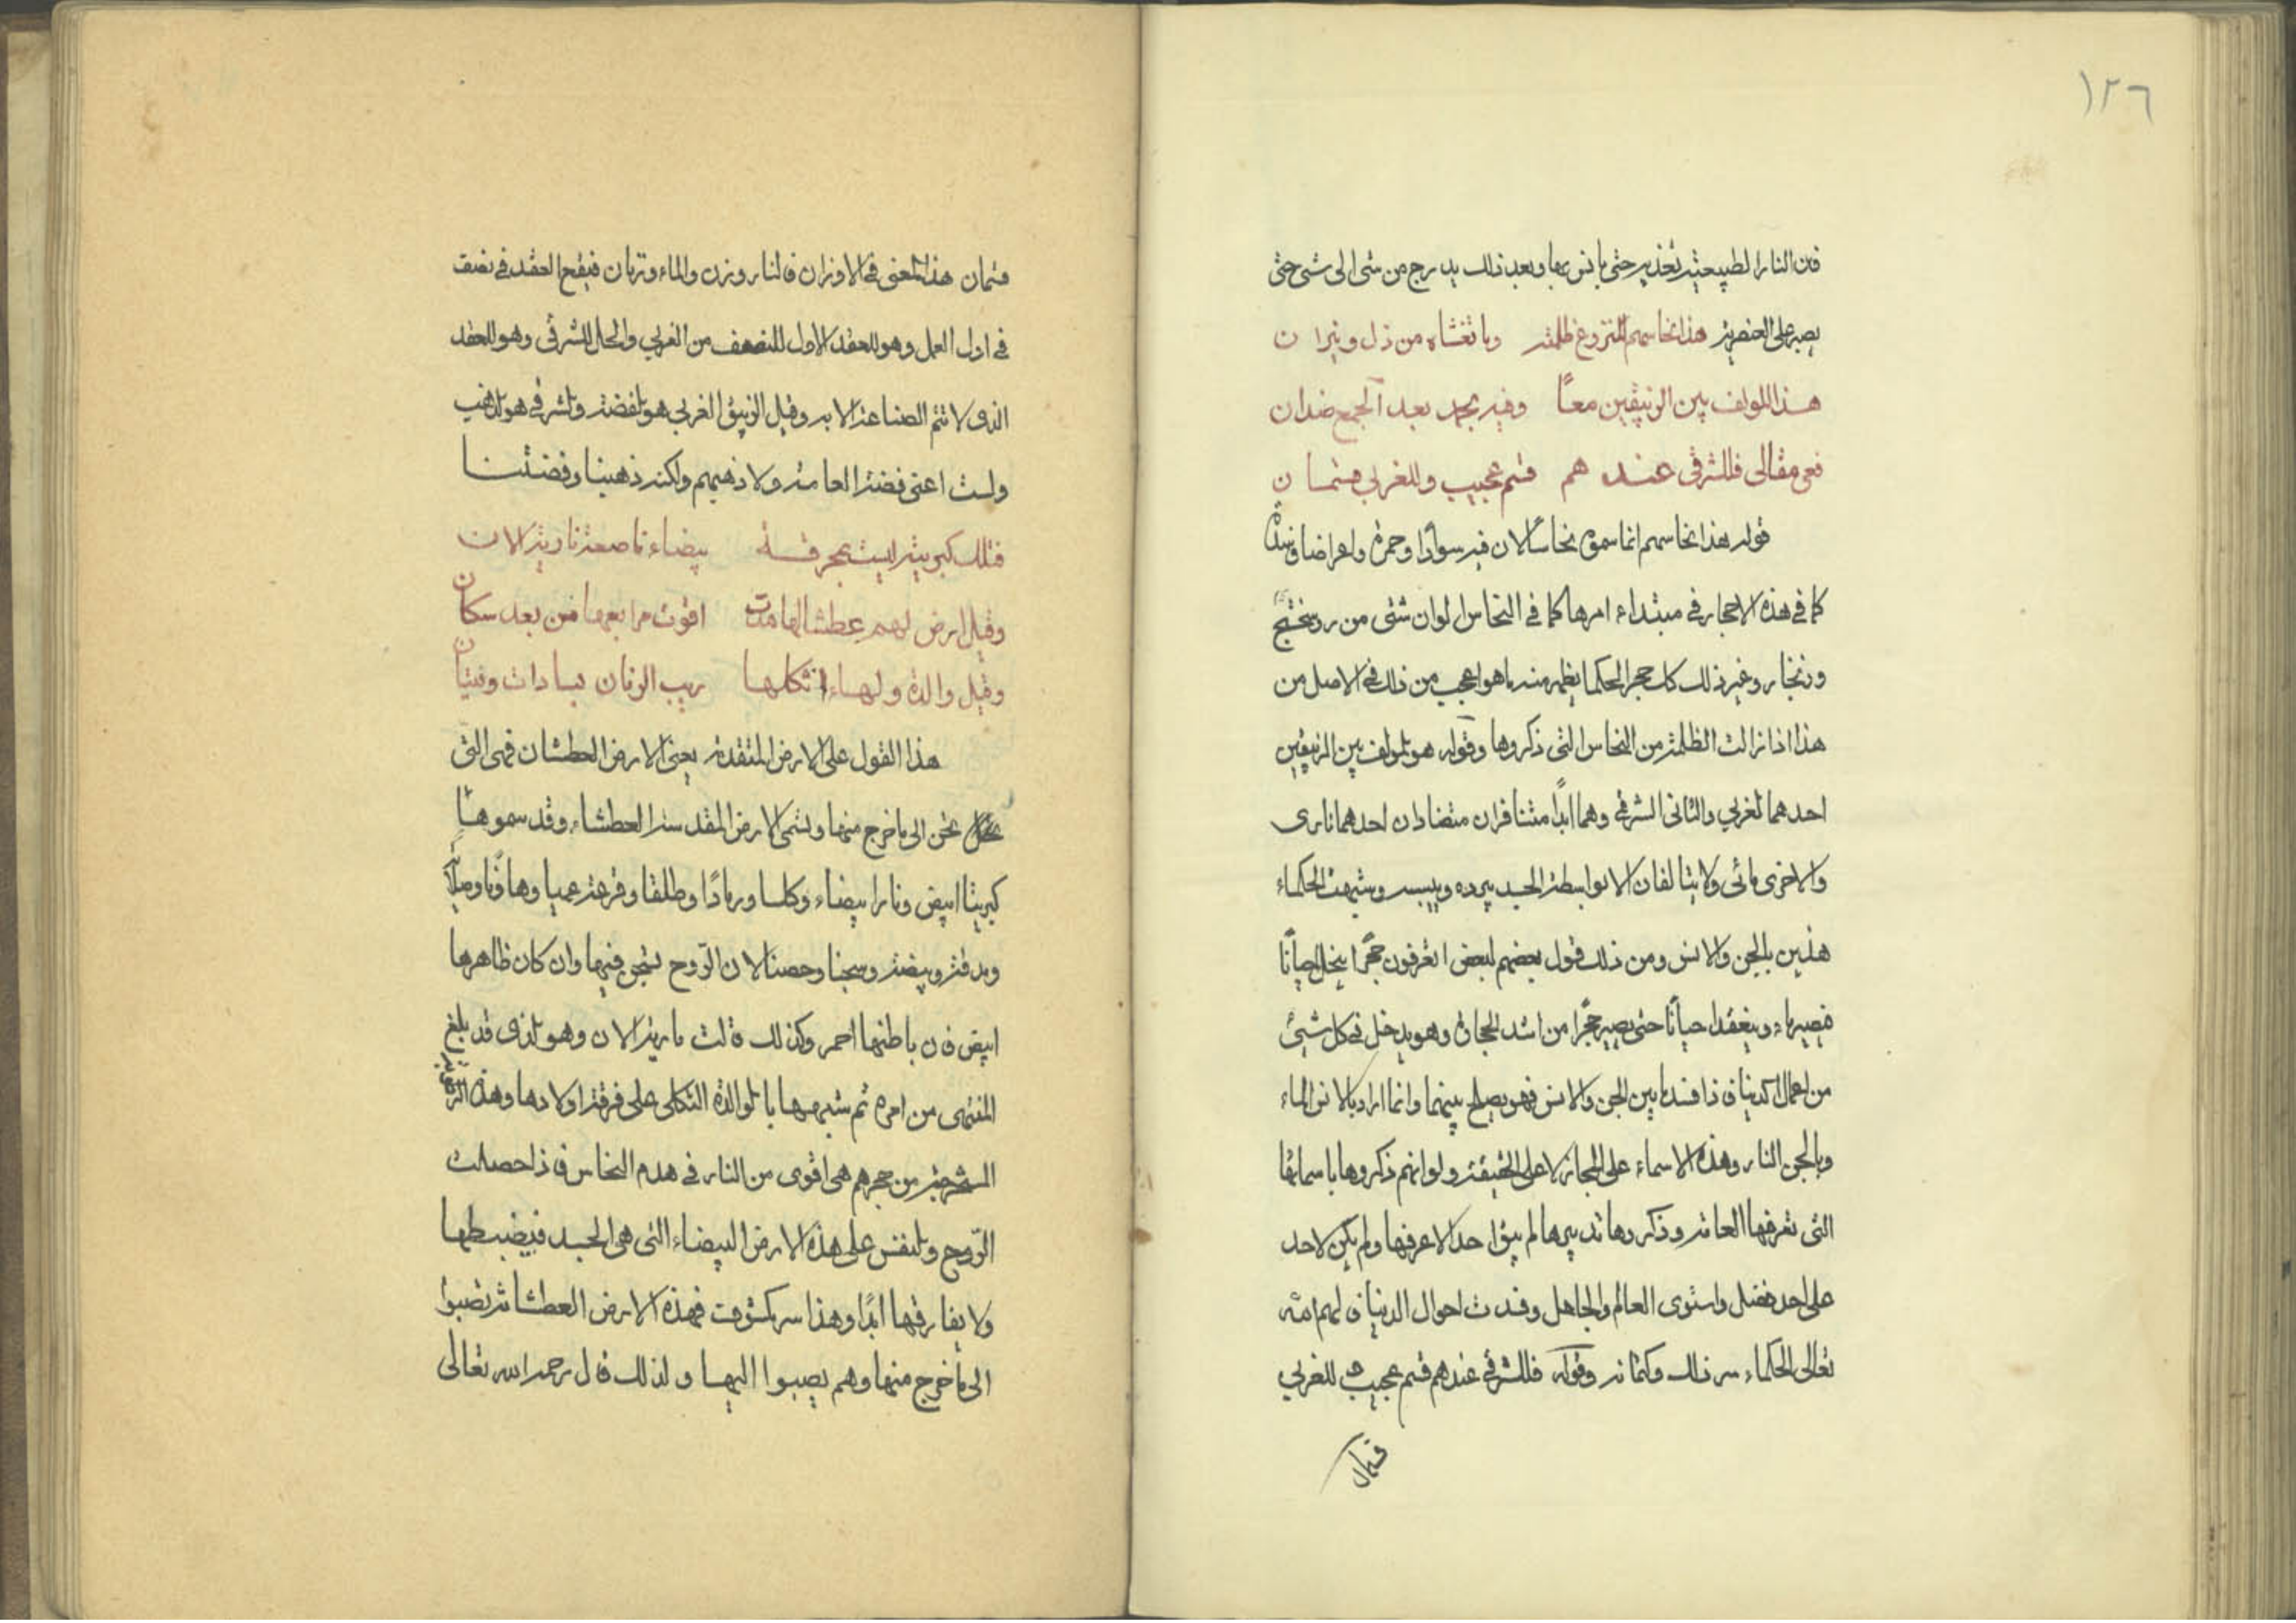 ١٢٦
فان النار الطبيعية تغذيه حتى يانس بها وبعد ذلك يدرج من شى الى شى حتى
يصبر على العنصرية هذا نحاسهم المنزوع ظلمته وما تغشاه من ذل ونيران
هذا المولف بين الزيبقين معًا وفيه يجمد بعد الجمع ضدان
فعى مقالى فللشرقى عندهم قسم عجيب وللغربي قسمان
قوله هذا نحاسهم انما سموه نحاسًا لان فيه سوادًا وحمرة واعراضا
كما في هذه الاحجار في مبتداء امرها كما في النحاس الوان شتى من روسختج
وزنجار وغير ذلك كان حجر الحكما يظهر منه ما هو اعجب من ذلك في الاصل من
هذا اذا زالت الظلمة من النحاس التى ذكروها وقوله هو المولف بين الزيبقين
احدهما الغربي والثانى الشرقى وهما ابدًا متنافران متضادان احدهما نارى
والاخرى مائى ولا يتالفان الا بواسطة الجسد يبرده ويبسه وشبهت الحكماء
هذين بالجن والانس ومن ذلك قول بعضهم لبعض اتعرفون حجرًا ينحل احيانًا
فيصير ماء وينعقد احيانًا حتى يصير حجرًا من اشد الحجارة وهو يدخل في كل شيئ
من اعمال الدنيا فاذا فسد ما بين الجن والانس فهو يصلح بينهما وانما اراد بالانس الماء
وبالجن النار وهذه الاسماء على المجاز لا على الحقيقة ولو انهم ذكروها باسمائها
التى تعرفها العامة وذكروها تدبيرها لم يبق احد الا عرفها ولم يكن لاحد
على احد فضل واستوى العالم والجاهل وفسدت احوال الدنيا فالهم الله
تعالى الحكماء ستر ذلك وكتمانه وقوله فللشرقى عندهم قسم عجيب وللغربي
قسمان
قسمان هذا المعنى في الاوزان فالنار وزن والماء وزنان فيقع العقد في نصف
في اول العمل وهو العقد الاول للنصف من الغربي والحل للشرقى وهو العقد
الذى لا تتم الصناعة الا به وقيل الزيبق الغربي هو الفضة والشرقى هو الذهب
ولست اعنى فضة العامة ولا ذهبهم ولكنه ذهبنا وفضتنا
فتلك كبريتة ليست بمحرقة بيضاء ناصعة نارية الان
وقيل ارض لهم عطشا لها مدت اقوت مرابعها من بعد سكان
وقيل والدة ولهاء اثكلها ريب الزمان بسادات وفتيان
هذا القول على الارض المتقدمة يعنى الارض العطشان فهى التى
تحن الى ما خرج منها وتسمى الارض المقدسة العطشاء وقد سموها
كبريتا ابيض ونارا بيضاء وكلسا ورمادًا وطلقا وقرعة عميا وهاونًا
ومدقة وبيضة وسجنا وحصنا لان الروح تسجن فيها وان كان ظاهرها
ابيض فان باطنها احمر وكذلك قالت مارية الان وهو الذى قد بلغ
المنتهى من امره ثم شبهها بالوالدة الثكلى على فرقة اولادها وهذه
المستخرجة من حجرهم هى اقوى من النار في هدم النحاس فاذا حصلت
الروح والنفس على هذه الارض البيضاء التى هى الجسد فيضبطها
ولا يفارقها ابدًا وهذا سر مكشوف فهذه الارض العطشانة تصبوا
الى ما خرج منها وهم يصبوا اليها ولذلك قال رحمه الله تعالى